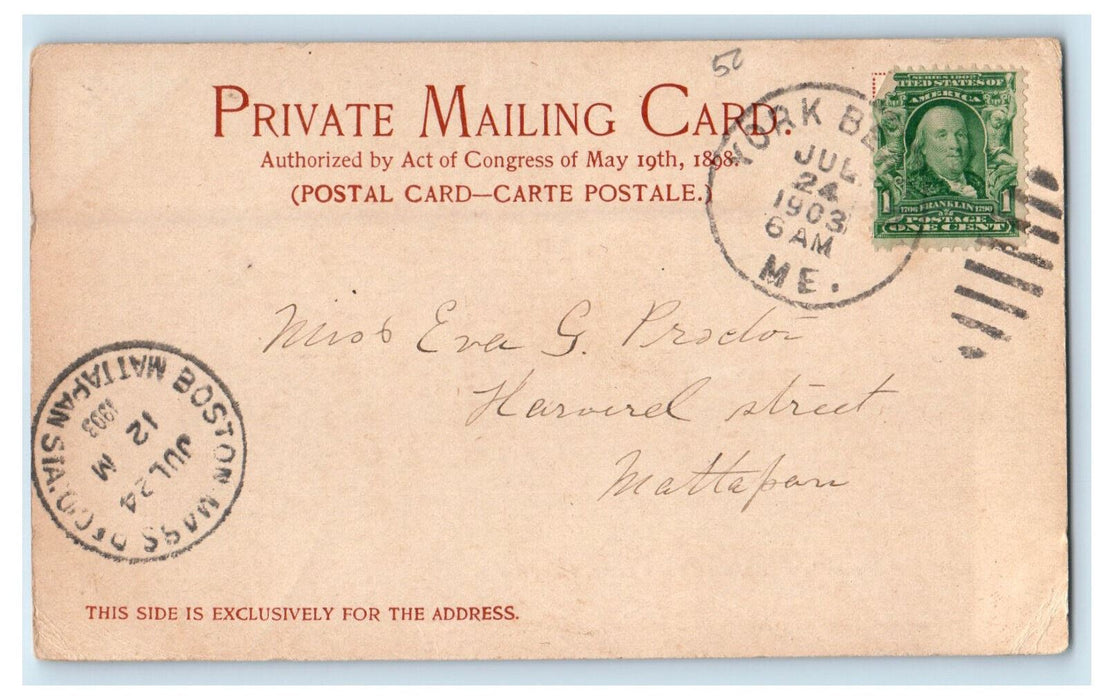 52
PRIVATE MAILING CARD.
Authorized by Act of Congress of May 19th, 1898.
(POSTAL CARD—CARTE POSTALE.)
YORK BEA
JUL
24
1903
6 AM
ME.
SERIES 1902
UNITED STATES OF
AMERICA
1 1706 FRANKLIN 1790 1
POSTAGE
ONE CENT
Miss Eva G. Proctor
Harverd street
Mattapan
BOSTON MASS REC'D
MATTAPAN STA.
JUL 24
12 M
1903
THIS SIDE IS EXCLUSIVELY FOR THE ADDRESS.